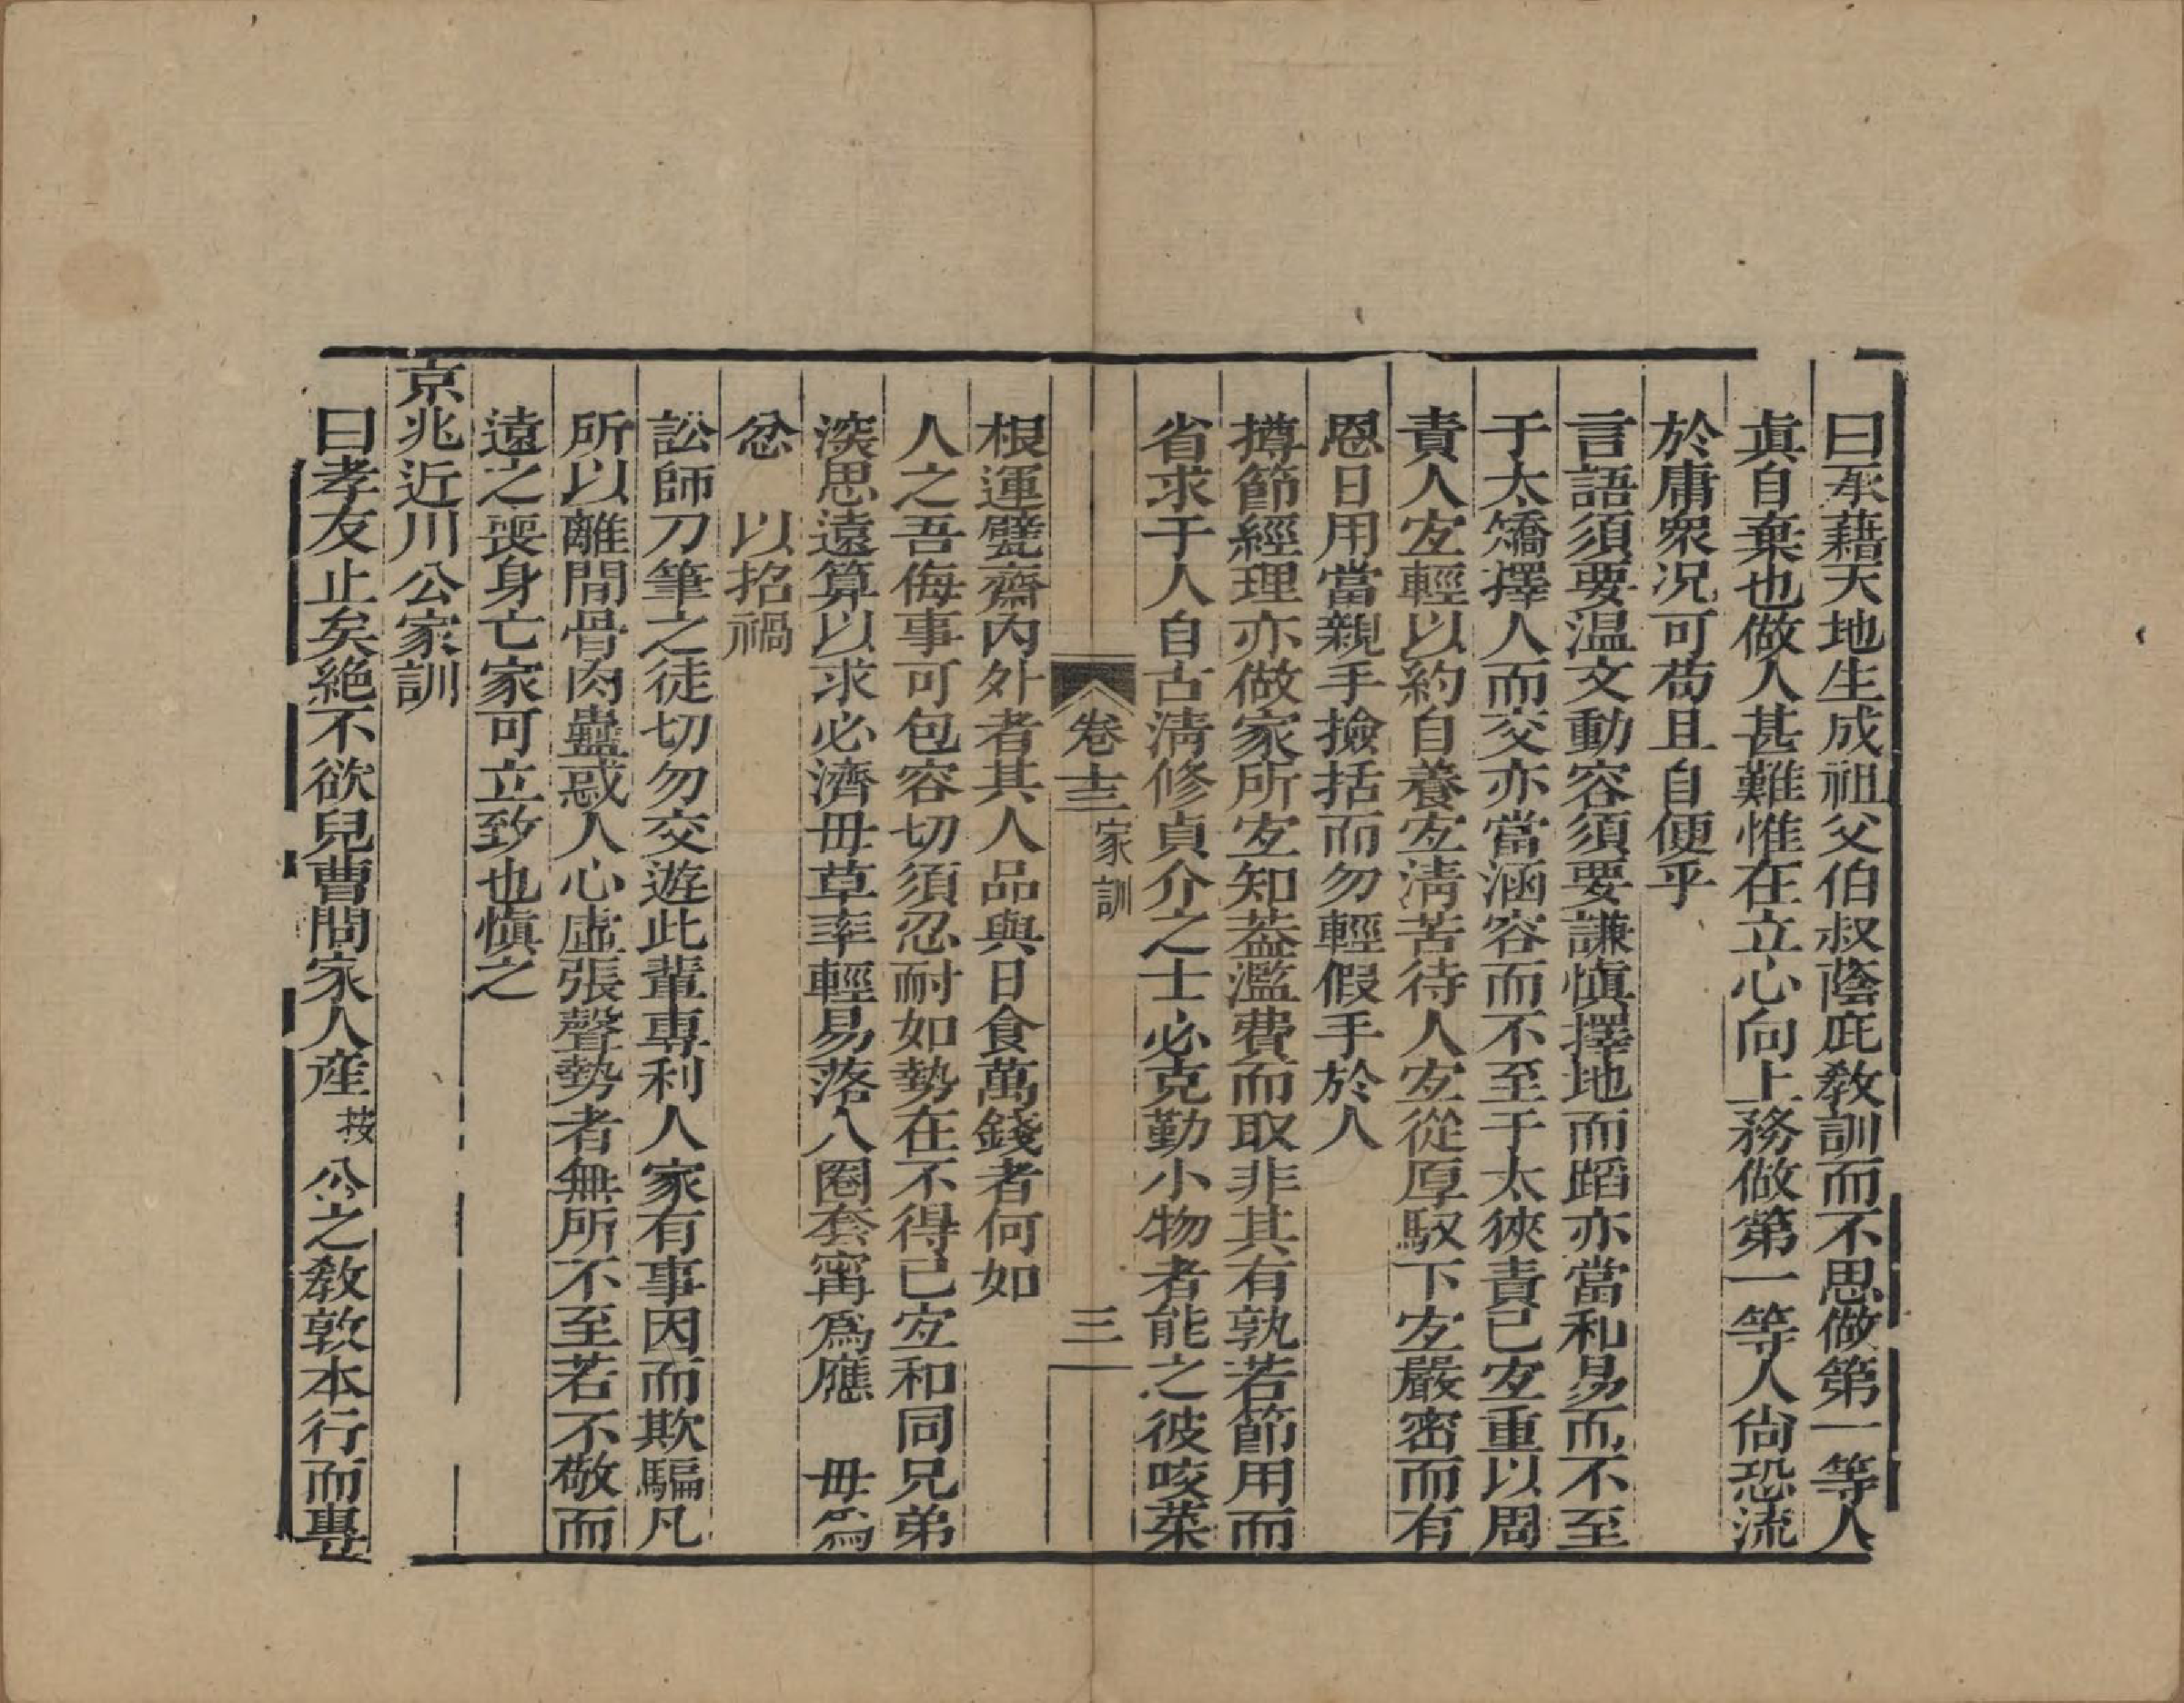 曰承藉天地生成祖父伯叔蔭庇教訓而不思做第一等人
眞自棄也做人甚難惟在立心向上務做第一等人尙恐流
於庸衆况可苟且自便乎
言語須要温文動容須要謙愼擇地而蹈亦當和易而不至
于太矯擇人而交亦當涵容而不至于太狹責已宐重以周
責人宐輕以約自養宐淸苦待人宐從厚馭下宐嚴密而有
恩日用當親手撿括而勿輕假手於人
撙節經理亦做家所宐知葢濫費而取非其有孰若節用而
省求于人自古淸修貞介之士必克勤小物者能之彼咬菜
卷十三 家訓 三
根運甓齋內外者其人品與日食萬錢者何如
人之吾侮事可包容切須忍耐如勢在不得已宐和同兄弟
深思遠算以求必濟毋草率輕易落人圈套寗爲應 毋爲
忿 以招禍
訟師刀筆之徒切勿交遊此輩專利人家有事因而欺騙凡
所以離間骨肉蠱惑人心虛張聲勢者無所不至若不敬而
遠之喪身亡家可立致也愼之
京兆近川公家訓
曰孝友止矣絶不欲兒曹問家人產按公之敎敦本行而專